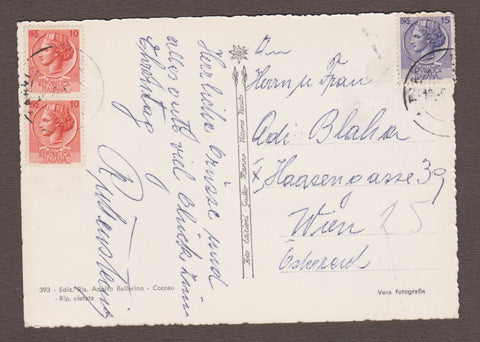 LIRE 10
REPUBBLICA ITALIANA
LIRE 10
REPUBBLICA ITALIANA
LIRE 15
Herzliche Grüsse und
alles gute viel Glück zum
Ehrentag
An
Herrn u Frau
Adi Blaha
Haasengasse 39
Wien 25
Österreich
Foto Edizioni Giulio Marino - Vittorio Veneto
393 - Ediz. Ris. Adolfo Ballerino - Coccau
- Rip. vietata
Vera fotografia